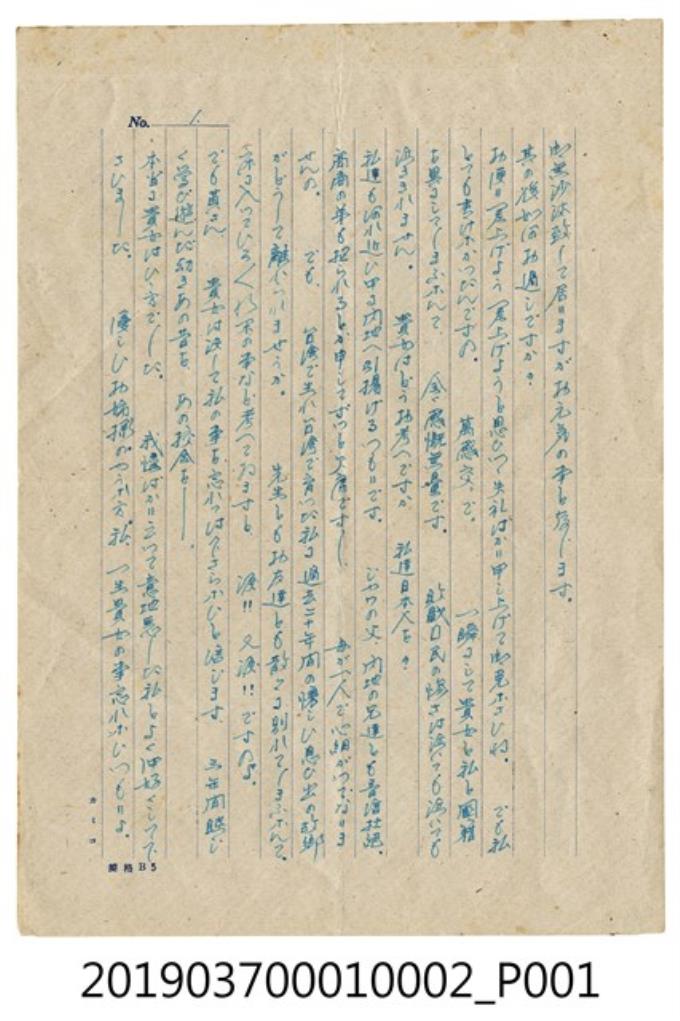 No. 1.
御無沙汰致して居りますがお元気の事と存じます。
其の後如何お過しですか?
お便り差上げよう差上げようと思ひつゝ失礼ばかり申し上げて御免なさいね。 でも私
とっても書けなかつたんですの。 萬感交々で。 一瞬にして貴女と私と國籍
を異にしてしまふなんて、 全く感慨無量です。 敗戦国民の惨さは泣いても泣いても
泣ききれません。 貴女はどうお考へですか 私達日本人を?
私達も何れ近い中に内地へ引揚げるつもりです。 ジャワの父、内地の兄達とも音信杜絶、
商商の弟も招られるとか申してずっと欠席ですし 母が一人で心細がつてなりま
せんの。 でも、 台湾で生れ台湾で育つた私に過去二十年間の懐しい思ひ出の故郷
がどうして離れられませうか。 先生ともお友達とも散々に別れてしまふなんて、
床に入つているいろ行末の事など考へてゐますと、 涙!! 又涙!! ですのよ。
でも黄さん 貴女は決して私の事を忘れてはくださらないと信じます。 三年間睦じ
く学び遊んだ幼きあの昔を、 あの校舎を——。
本当に貴女はいゝ方でした。 我儘ばかり云つて意地悪した私とよく仲好くして下
さいました。 優しいお姉様のやうな方、私、一生貴女の事忘れないつもりよ。
カミヨ
規格B5
201903700010002_P001